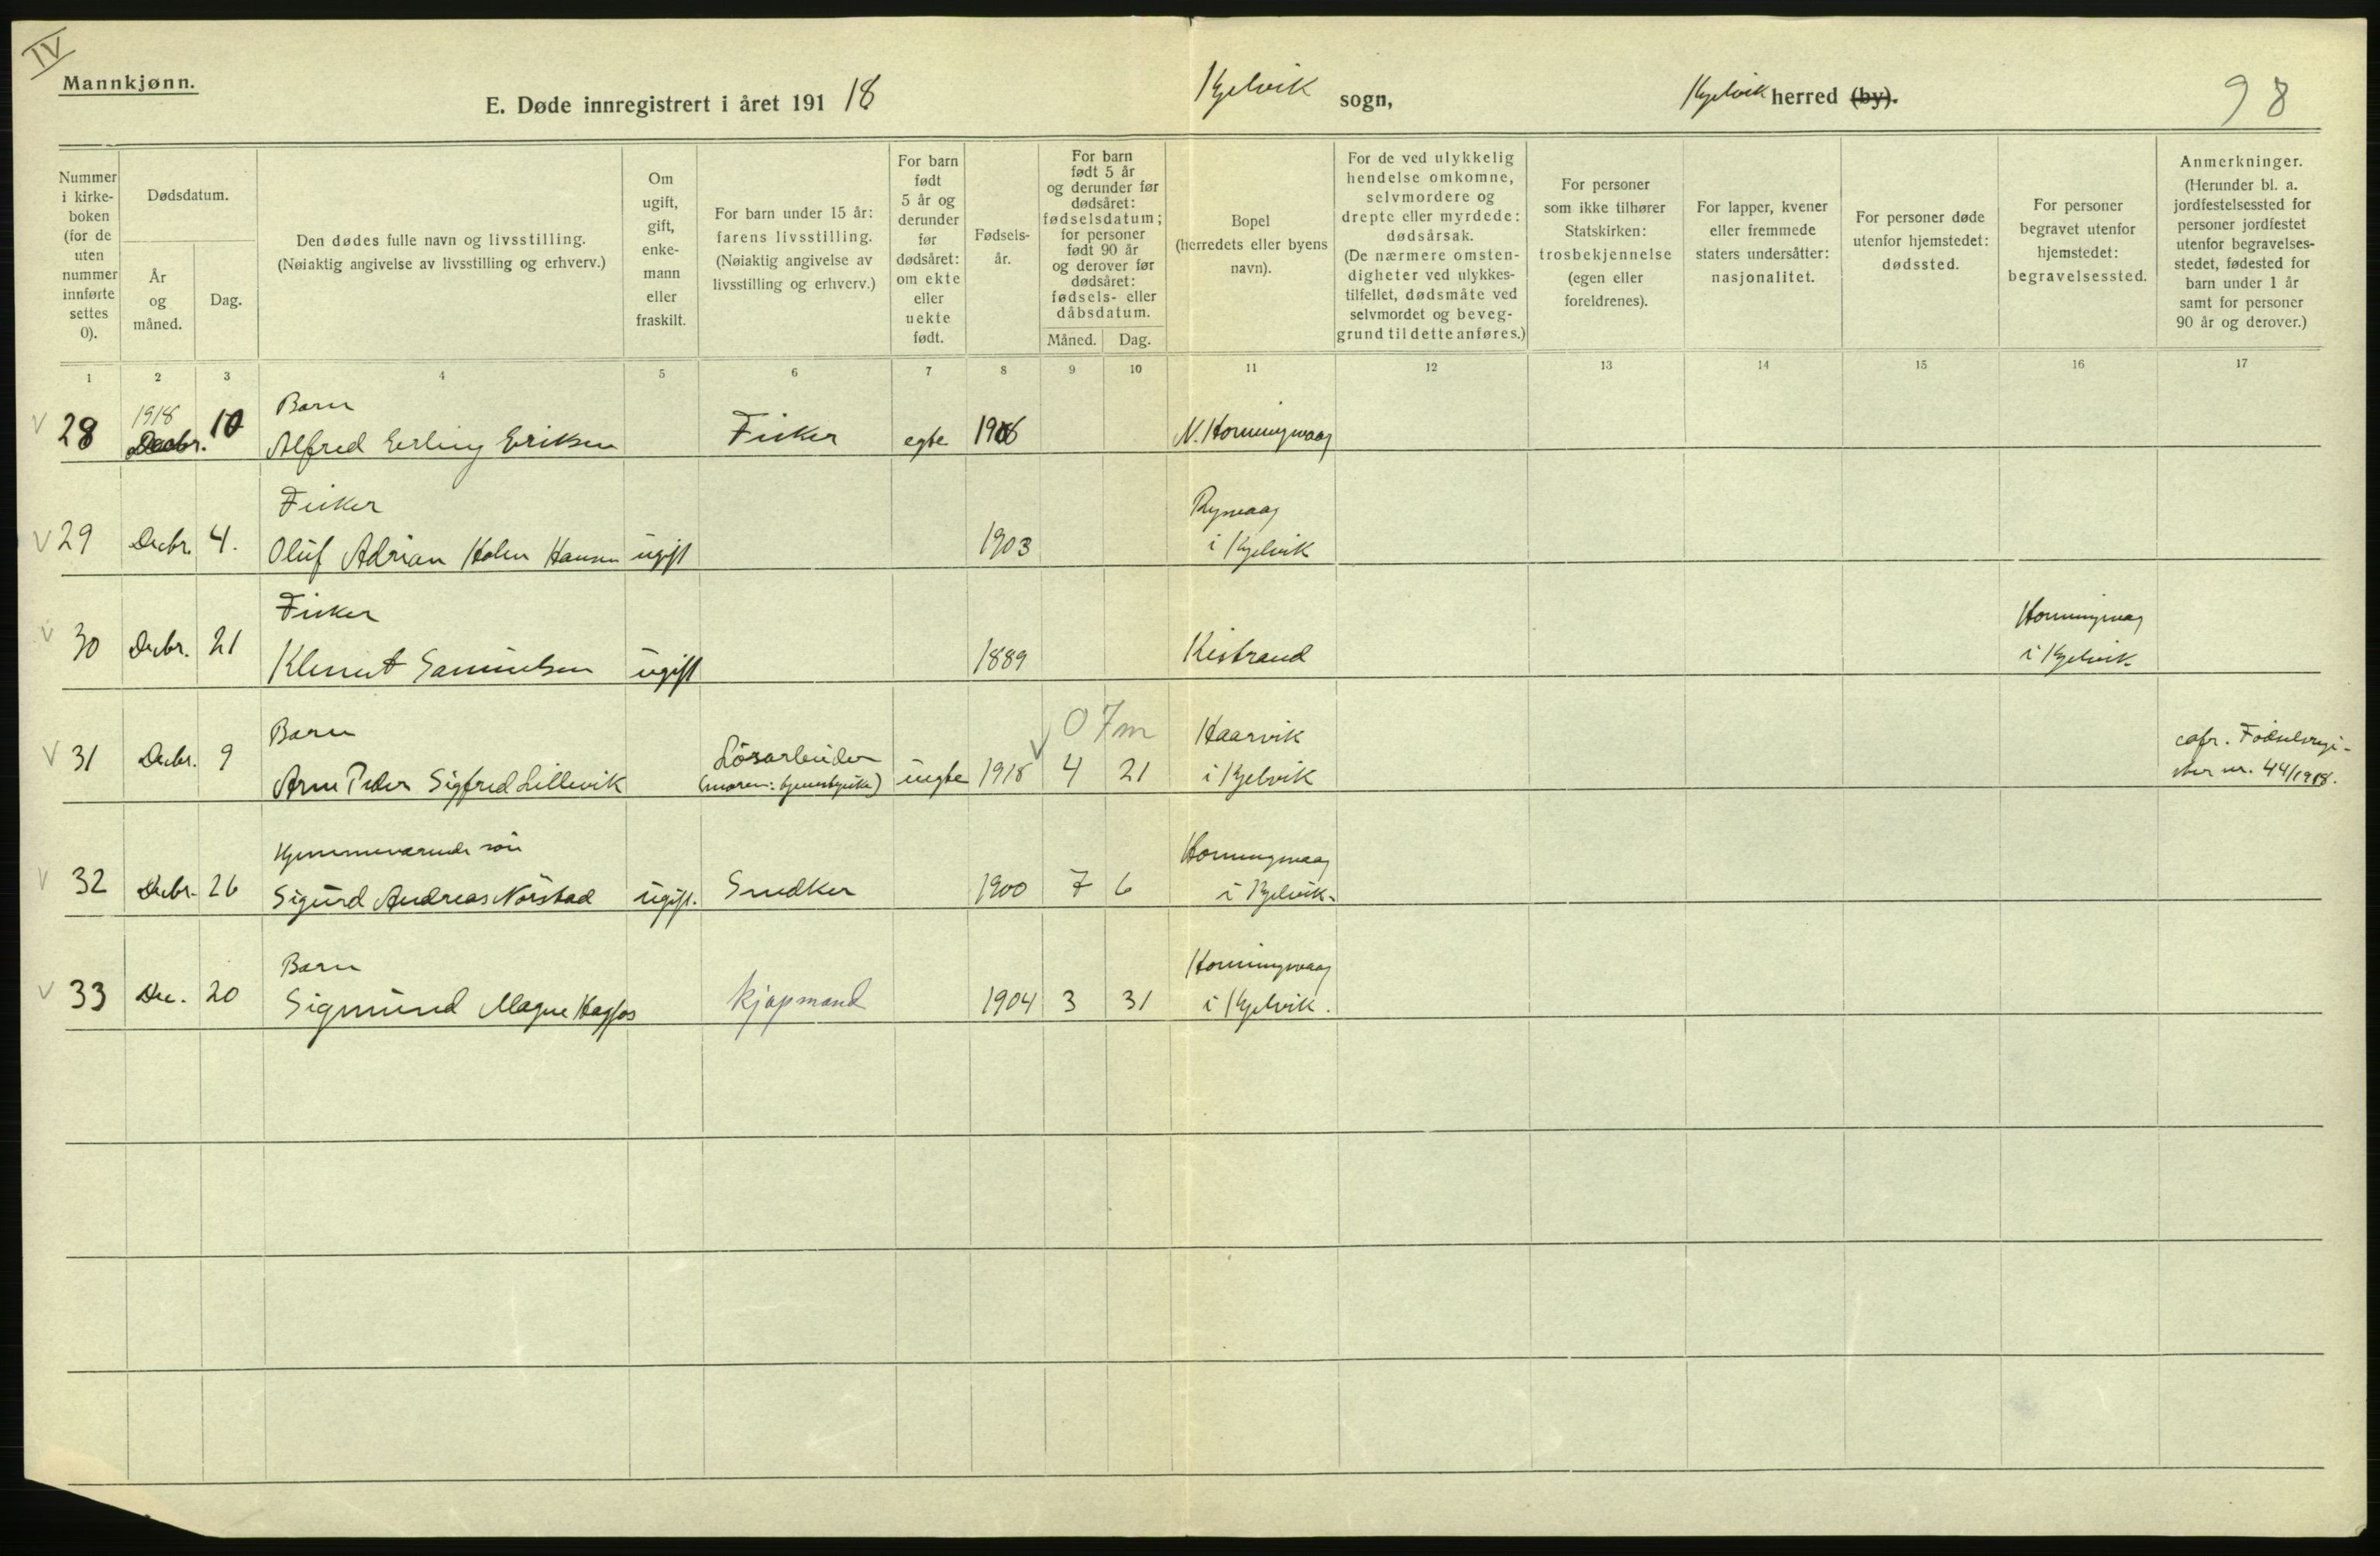 IV
Mannkjønn.
E. Døde innregistrert i året 191 18
Kjelvik sogn,
Kjelvik herred (by).
98
Nummer i kirke-boken (for de uten nummer innførte settes 0).
Dødsdatum.
År og måned.
Dag.
Den dødes fulle navn og livsstilling.
(Nøiaktig angivelse av livsstilling og erhverv.)
Om ugift, gift, enke-mann eller fraskilt.
For barn under 15 år: farens livsstilling.
(Nøiaktig angivelse av livsstilling og erhverv.)
For barn født 5 år og derunder før dødsåret: om ekte eller uekte født.
Fødsels-år.
For barn født 5 år og derunder før dødsåret: fødselsdatum; for personer født 90 år og derover før dødsåret: fødsels- eller dåbsdatum.
Måned.
Dag.
Bopel
(herredets eller byens navn).
For de ved ulykkelig hendelse omkomne, selvmordere og drepte eller myrdede: dødsårsak.
(De nærmere omsten-digheter ved ulykkes-tilfellet, dødsmåte ved selvmordet og beveg-grund til dette anføres.)
For personer som ikke tilhører Statskirken: trosbekjennelse (egen eller foreldrenes).
For lapper, kvener eller fremmede staters undersåtter: nasjonalitet.
For personer døde utenfor hjemstedet: dødssted.
For personer begravet utenfor hjemstedet: begravelsessted.
Anmerkninger.
(Herunder bl. a. jordfestelsessted for personer jordfestet utenfor begravelses-stedet, fødested for barn under 1 år samt for personer 90 år og derover.)
1 2 3 4 5 6 7 8 9 10 11 12 13 14 15 16 17
1918 Barn
v 28 Decbr. 10 Alfred Erling Eriksen Fisker egte 1906 N. Honningvaag
Fisker Ryvaag
v 29 Decbr. 4. Oluf Adrian Holm Hansen ugift 1903 i Kjelvik
Fisker Honningvaag
v 30 Decbr. 21 Klemet Samuelsen ugift 1889 Kistrand i Kjelvik
Barn Lösarbeider 0 7m Haarvik cofr. Födselregi-
v 31 Decbr. 9 Arne Peder Sigfred Lillevik (moren: ) uegte 1918 v 4 21 i Kjelvik ster nr. 44/1918.
Hjemmeværende sön Honningvaag
v 32 Decbr. 26 Sigurd Andreas Norstad ugift. Snedker 1900 7 6 i Kjelvik.
Barn Honningvaag
v 33 Dec. 20 Sigmund Magne kjøpmand 1904 3 31 i Kjelvik.